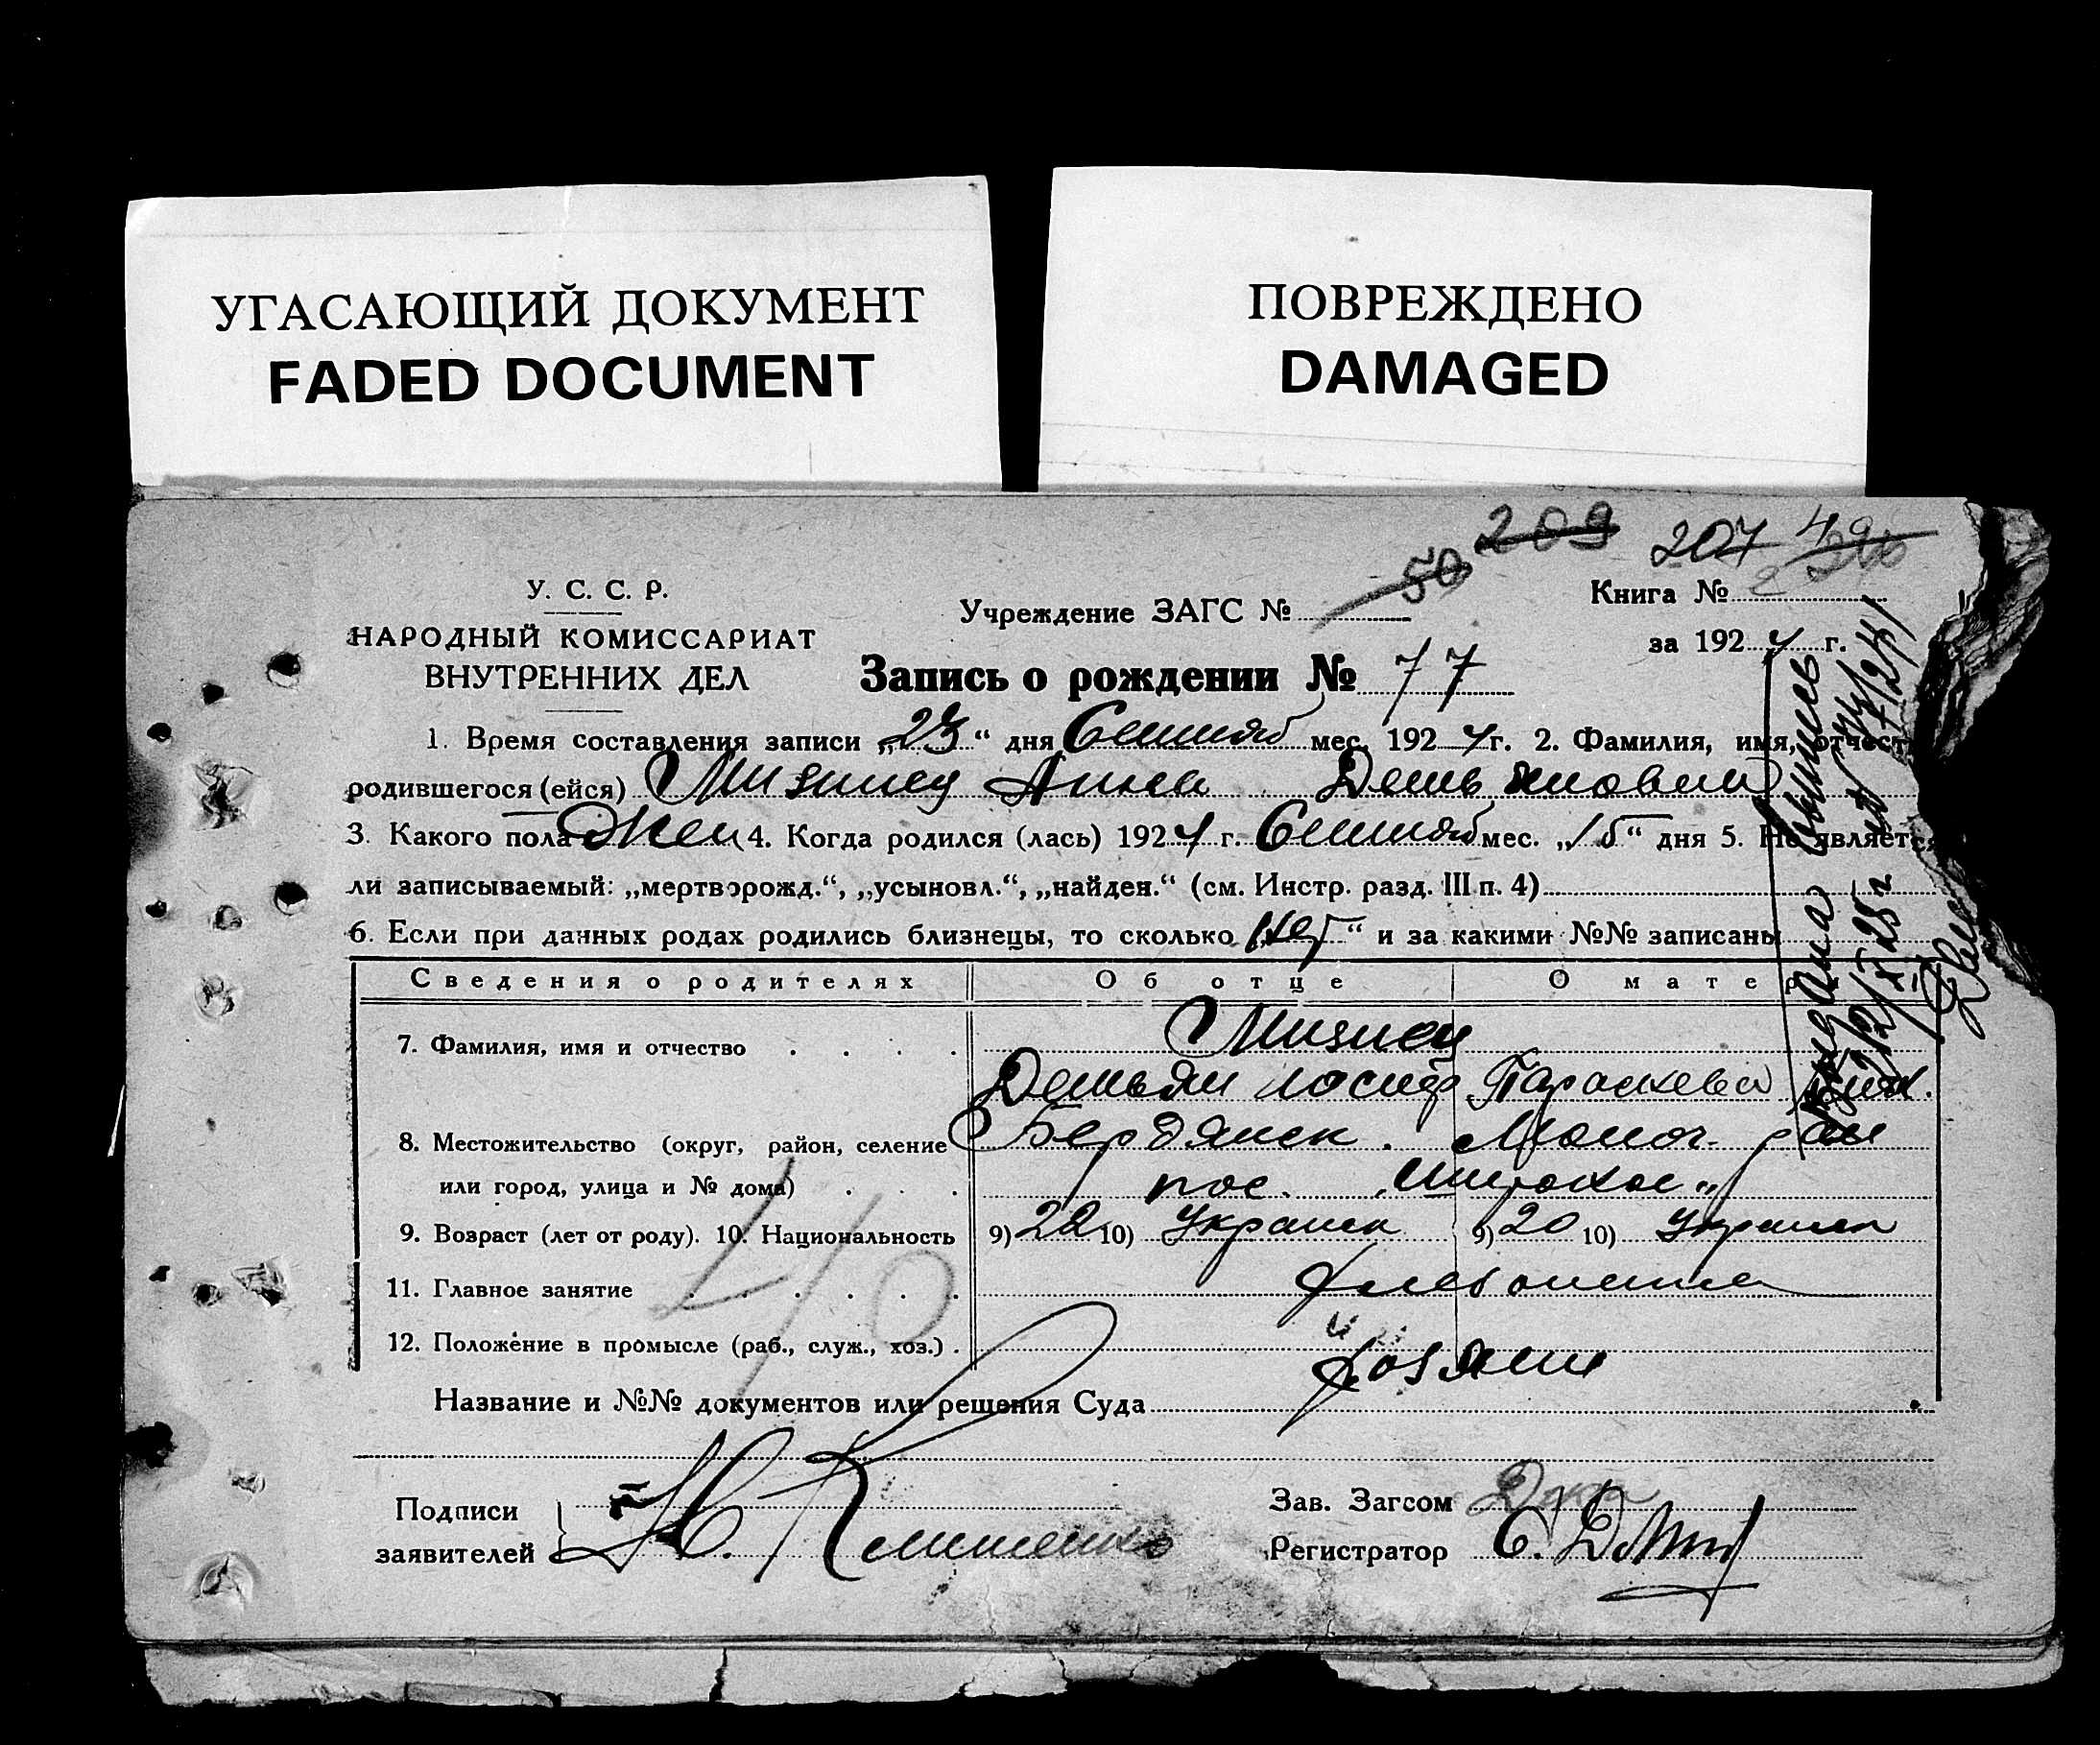 УГАСАЮЩИЙ ДОКУМЕНТ
FADED DOCUMENT
ПОВРЕЖДЕНО
DAMAGED
209 207 49
У. С. С. Р.
НАРОДНЫЙ КОМИССАРИАТ
ВНУТРЕННИХ ДЕЛ
Учреждение ЗАГС № 50
Книга № 2
за 1924 г.
Запись о рождении № 77
1. Время составления записи „23“ дня Сентяб мес. 1924 г. 2. Фамилия, имя, отчест
родившегося (ейся) Мизинец Анна Демьяновна
3. Какого пола Жен 4. Когда родился (лась) 1924 г. Сентяб мес. „15“ дня 5. Не являетс
ли записываемый: „мертворожд.“, „усыновл.“, „найден.“ (см. Инстр. разд. III п. 4)
6. Если при данных родах родились близнецы, то сколько „нет“ и за какими №№ записаны
Сведения о родителях Об отце О матери
7. Фамилия, имя и отчество Мизинец
Демьян Иосиф Параскева
8. Местожительство (округ, район, селение Бердянск.
или город, улица и № дома) пос. „Широкое„
9. Возраст (лет от роду). 10. Национальность 9) 22 10) Украин 9) 20 10) Украин
11. Главное занятие Хлебопаш
12. Положение в промысле (раб., служ., хоз.) Хозяин
40
Название и №№ документов или решения Суда
Подписи
заявителей
Зав. Загсом
Регистратор